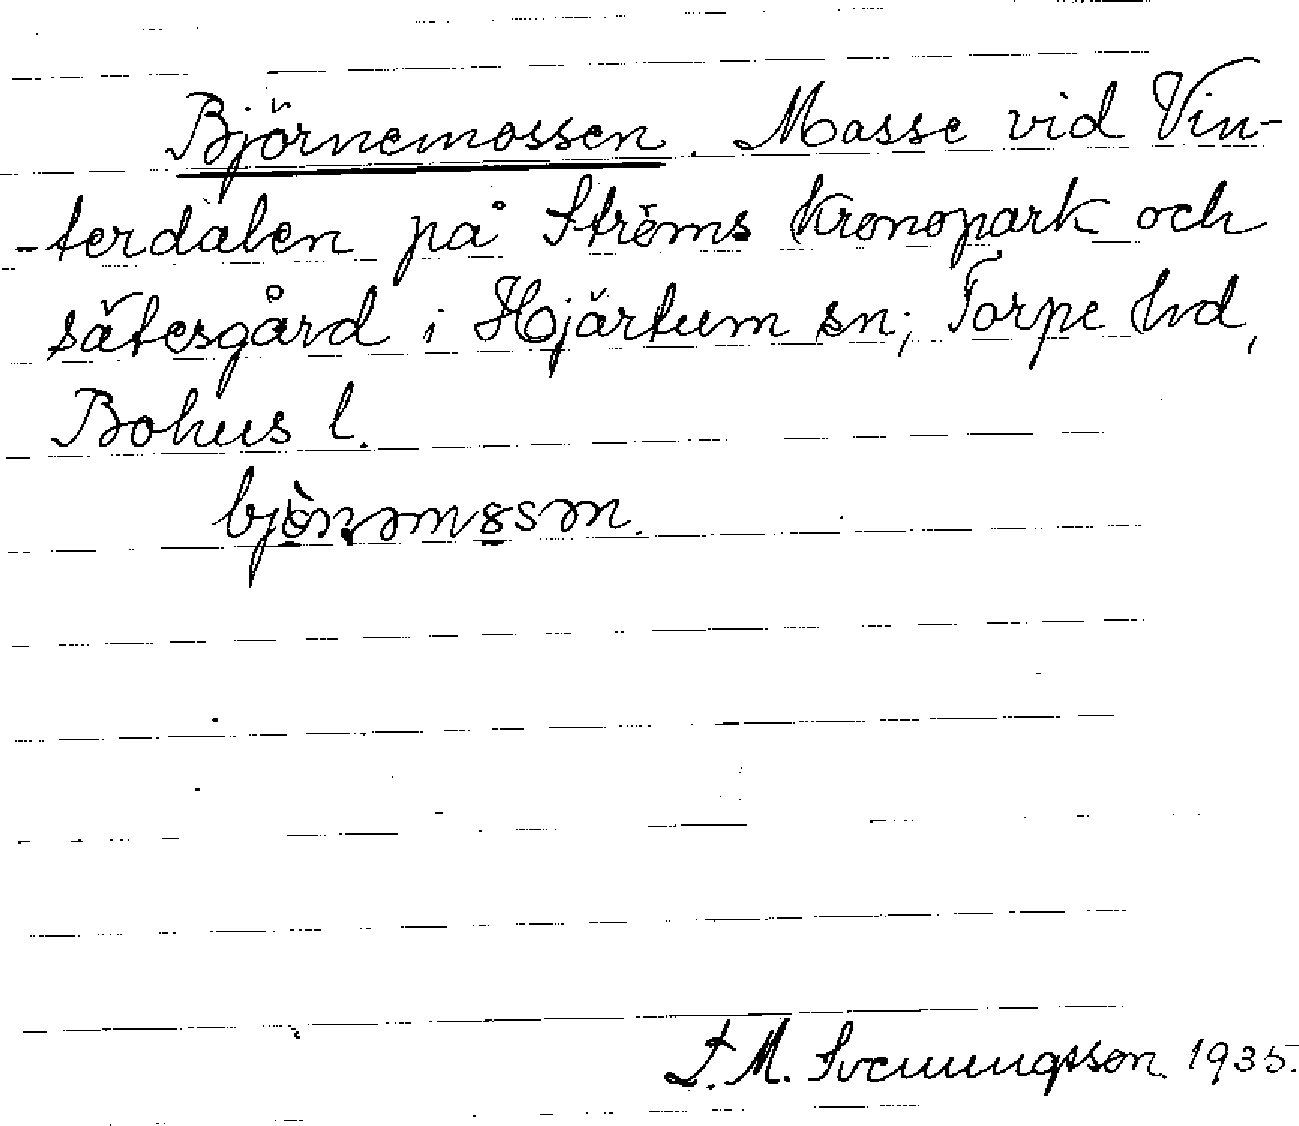 Björnemossen. Mosse vid Vin-
-terdalen på Ströms kronopark och
sätesgård i Hjärtum sn; Torpe hd,
Bohus l.
T. M. Svenungsson 1935.